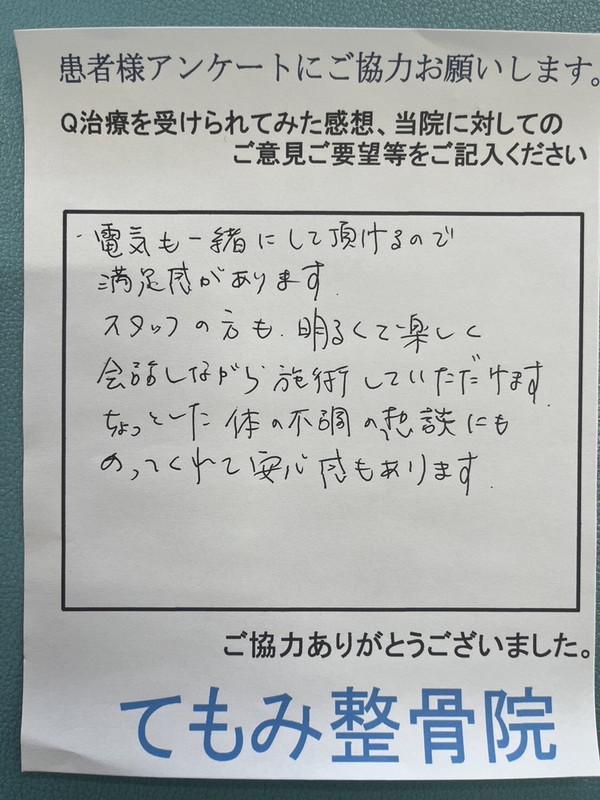 患者様アンケートにご協力お願いします。
Q治療を受けられてみた感想、当院に対しての
ご意見ご要望等をご記入ください
・電気も一緒にして頂けるので
満足感があります。
スタッフの方も、明るくて楽しく
会話しながら施術していただけます。
ちょっとした体の不調の想談にも
のってくれて安心感もあります。
ご協力ありがとうございました。
てもみ整骨院